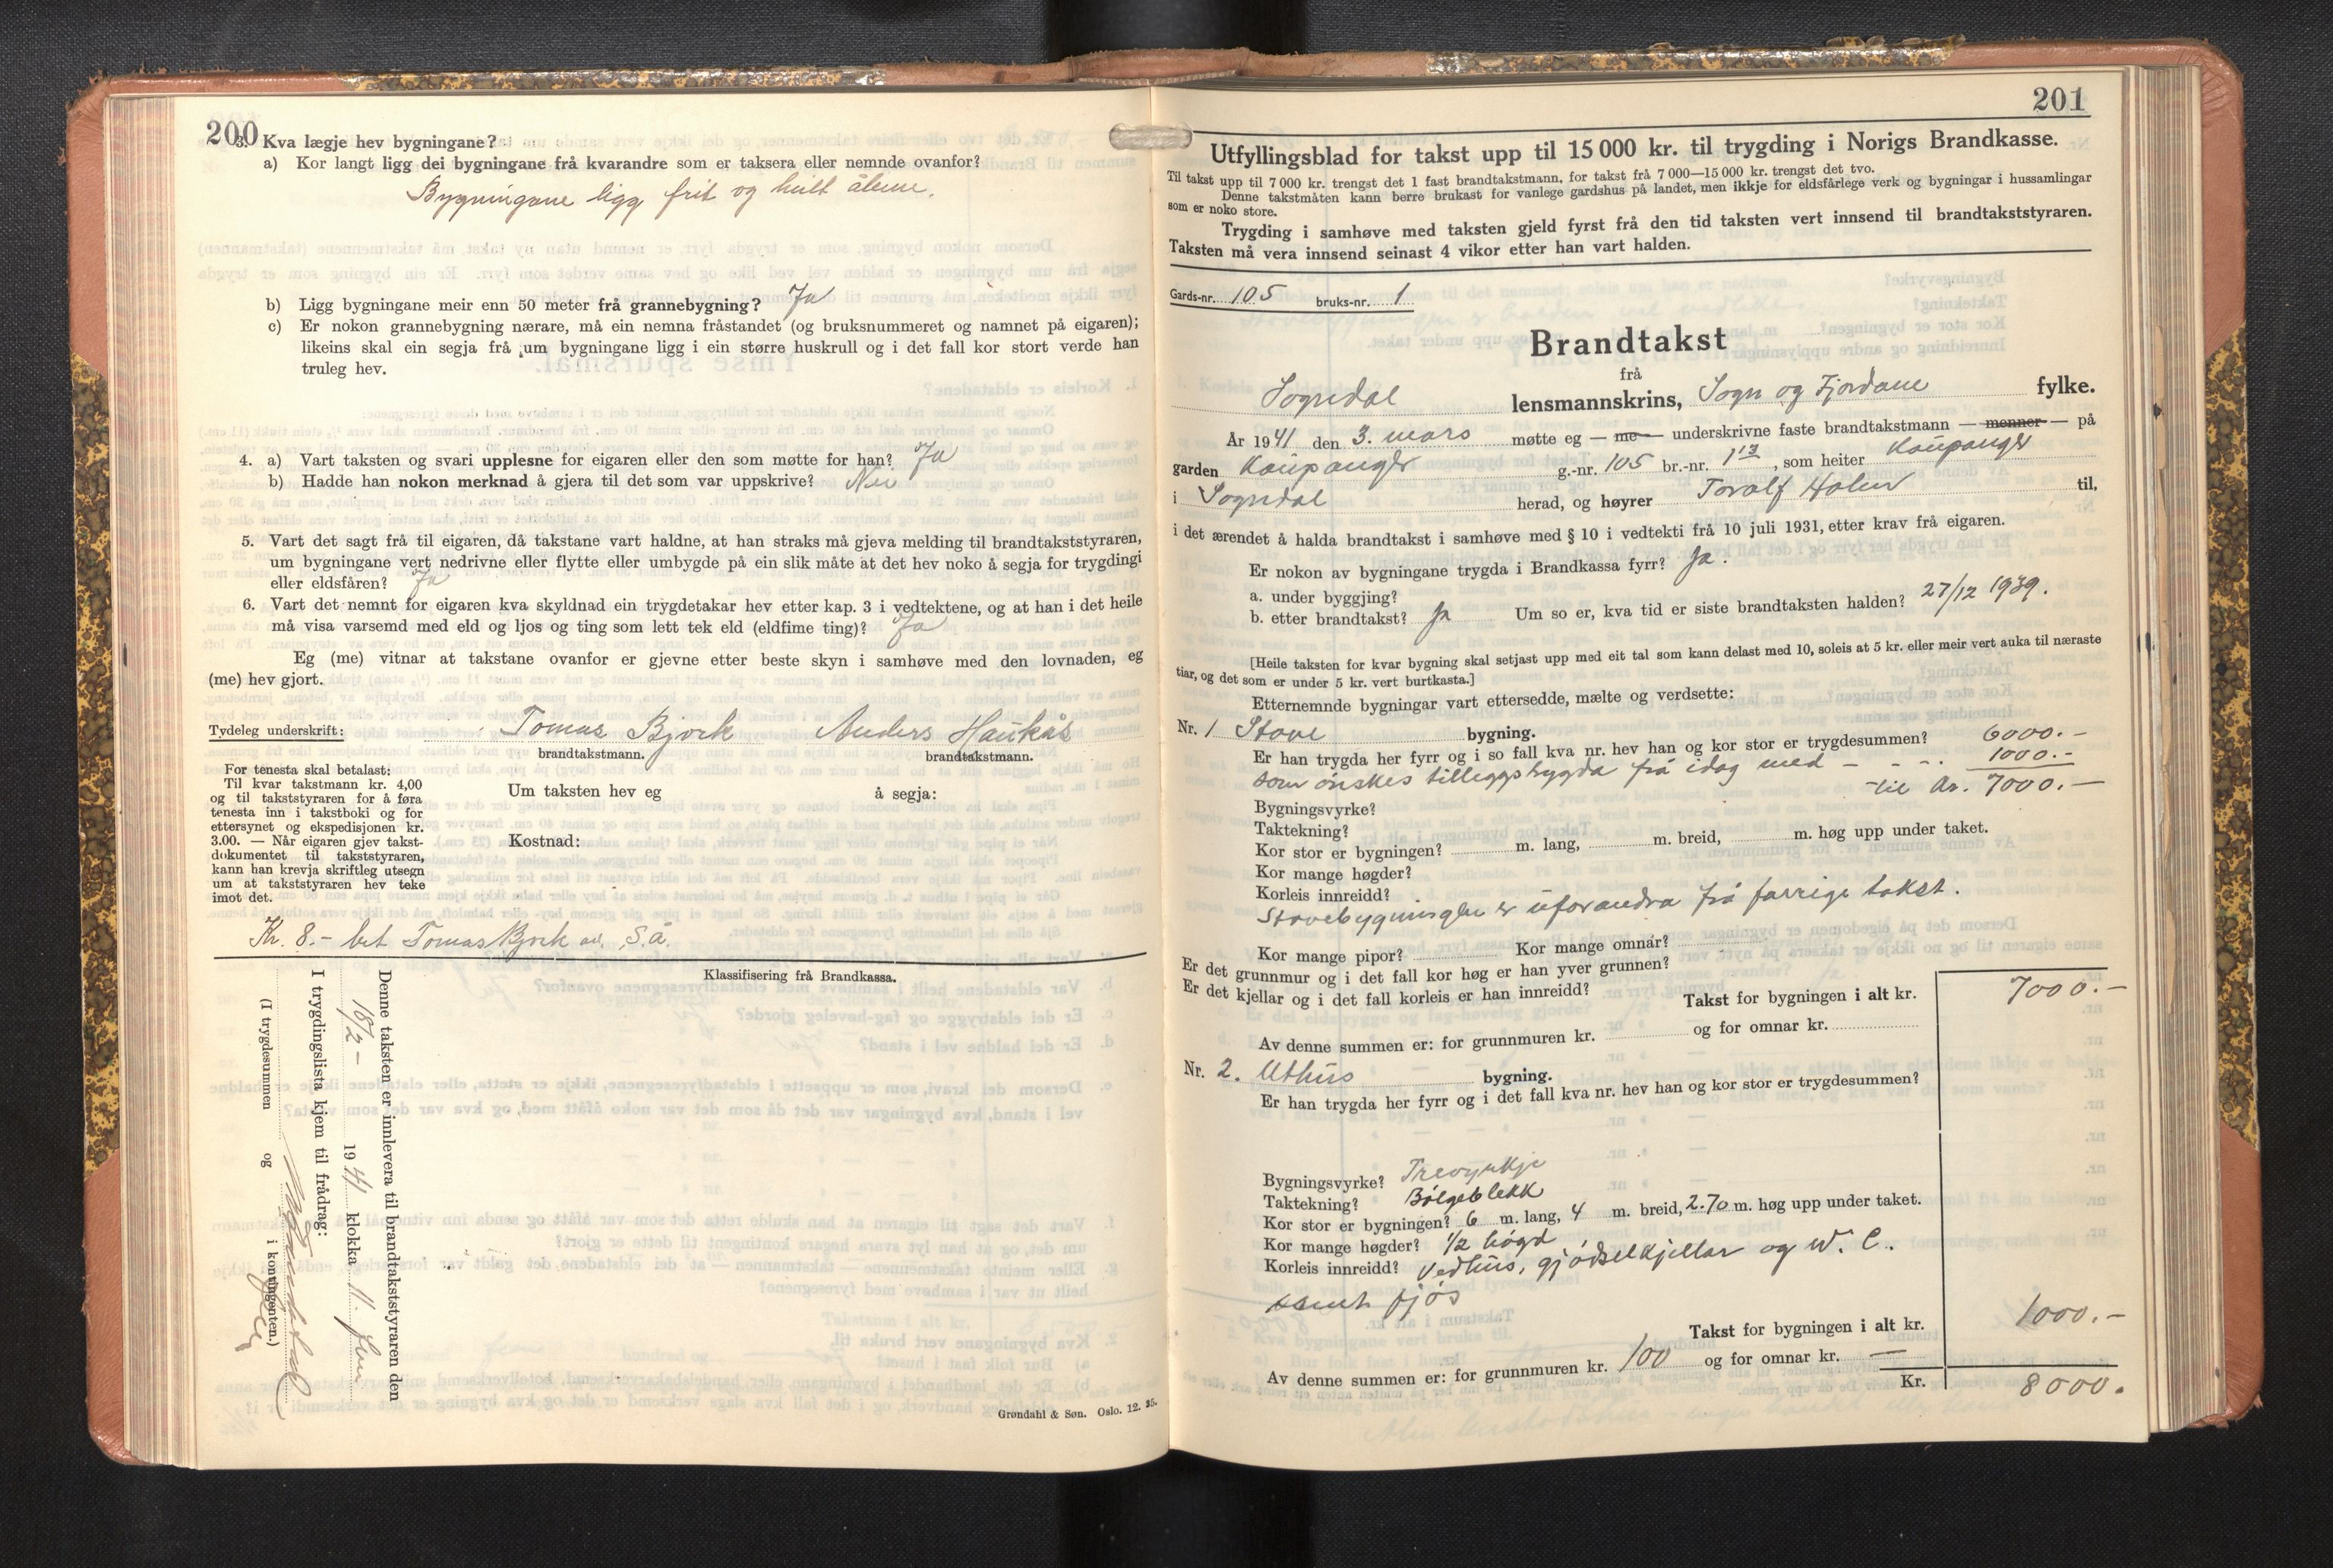 200
3. Kva lægje hev bygningane?
a) Kor langt ligg dei bygningane frå kvarandre som er taksera eller nemnde ovanfor?
Bygningane ligg frit og heilt åleine.
b) Ligg bygningane meir enn 50 meter frå grannebygning? Ja
c) Er nokon grannebygning nærare, må ein nemna fråstandet (og bruksnummeret og namnet på eigaren);
likeins skal ein segja frå um bygningane ligg i ein større huskrull og i det fall kor stort verde han
truleg hev.
4. a) Vart taksten og svari upplesne for eigaren eller den som møtte for han? Ja
b) Hadde han nokon merknad å gjera til det som var uppskrive? Nei
5. Vart det sagt frå til eigaren, då takstane vart haldne, at han straks må gjeva melding til brandtakststyraren,
um bygningane vert nedrivne eller flytte eller umbygde på ein slik måte at det hev noko å segja for trygdingi
eller eldsfåren? Ja
6. Vart det nemnt for eigaren kva skyldnad ein trygdetakar hev etter kap. 3 i vedtektene, og at han i det heile
må visa varsemd med eld og ljos og ting som lett tek eld (eldfime ting)? Ja
Eg (me) vitnar at takstane ovanfor er gjevne etter beste skyn i samhøve med den lovnaden, eg
(me) hev gjort.
Tydeleg underskrift: Tomas Bjork Anders Haukås
brandtakstmann. brandtakstmann.
For tenesta skal betalast:
Til kvar takstmann kr. 4,00
og til takststyraren for å føra
tenesta inn i takstboki og for
ettersynet og ekspedisjonen kr.
3.00. — Når eigaren gjev takst-
dokumentet til takststyraren,
kann han krevja skriftleg utsegn
um at takststyraren hev teke
imot det.
Um taksten hev eg å segja:
Kostnad:
Kr. 8.- bet Tomas Bjork S.å.
Klassifisering frå Brandkassa.
Denne taksten er innlevera til brandtakststyraren den
18/2 - 1941 klokka 11.
I trygdingslista kjem til frådrag:
(I trygdesummen og i kontingenten.)
Grøndahl & Søn. Oslo. 12. 35.
201
Utfyllingsblad for takst upp til 15 000 kr. til trygding i Norigs Brandkasse.
Til takst upp til 7 000 kr. trengst det 1 fast brandtakstmann, for takst frå 7 000—15 000 kr. trengst det tvo.
Denne takstmåten kann berre brukast for vanlege gardshus på landet, men ikkje for eldsfårlege verk og bygningar i hussamlingar
som er noko store.
Trygding i samhøve med taksten gjeld fyrst frå den tid taksten vert innsend til brandtakststyraren.
Taksten må vera innsend seinast 4 vikor etter han vart halden.
Gards-nr. 105 bruks-nr. 1
Brandtakst
frå
Sogndal lensmannskrins, Sogn og Fjordane fylke.
År 1941 den 3. mars møtte eg — me — underskrivne faste brandtakstmann — menner — på
garden Kaupanger g.-nr. 105 br.-nr. 1 13, som heiter Kaupanger
i Sogndal herad, og høyrer Toralf Holen til,
i det ærendet å halda brandtakst i samhøve med § 10 i vedtekti frå 10 juli 1931, etter krav frå eigaren.
Er nokon av bygningane trygda i Brandkassa fyrr? Ja.
a. under byggjing?
b. etter brandtakst? Ja Um so er, kva tid er siste brandtaksten halden? 27/12 1939.
[Heile taksten for kvar bygning skal setjast upp med eit tal som kann delast med 10, soleis at 5 kr. eller meir vert auka til næraste
tiar, og det som er under 5 kr. vert burtkasta.]
Etternemnde bygningar vart ettersedde, mælte og verdsette:
Nr. 1 Stove bygning.
Er han trygda her fyrr og i so fall kva nr. hev han og kor stor er trygdesummen? 6000.-
som ønskes tilleggstrygda frå idag med - - - 1000.-
til kr. 7000.-
Bygningsvyrke?
Taktekning?
Kor stor er bygningen? m. lang, m. breid, m. høg upp under taket.
Kor mange høgder?
Korleis innreidd?
Stovebygningen er uforandra frå farrige takst.
Kor mange pipor? Kor mange omnar?
Er det grunnmur og i det fall kor høg er han yver grunnen?
Er det kjellar og i det fall korleis er han innreidd?
Takst for bygningen i alt kr. 7000.-
Av denne summen er: for grunnmuren kr. og for omnar kr.
Nr. 2. Uthus bygning.
Er han trygda her fyrr og i det fall kva nr. hev han og kor stor er trygdesummen?
Bygningsvyrke? Trevyrkje
Taktekning? Bølgeblekk
Kor stor er bygningen? 6 m. lang, 4 m. breid, 2.70 m. høg upp under taket.
Kor mange høgder? 1/2 høgd
Korleis innreidd? Vedhus, gjødselkjellar og W. C.
samt fjøs
Takst for bygningen i alt kr. 1000.-
Av denne summen er: for grunnmuren kr. 100 og for omnar kr. —
Kr. 8000.